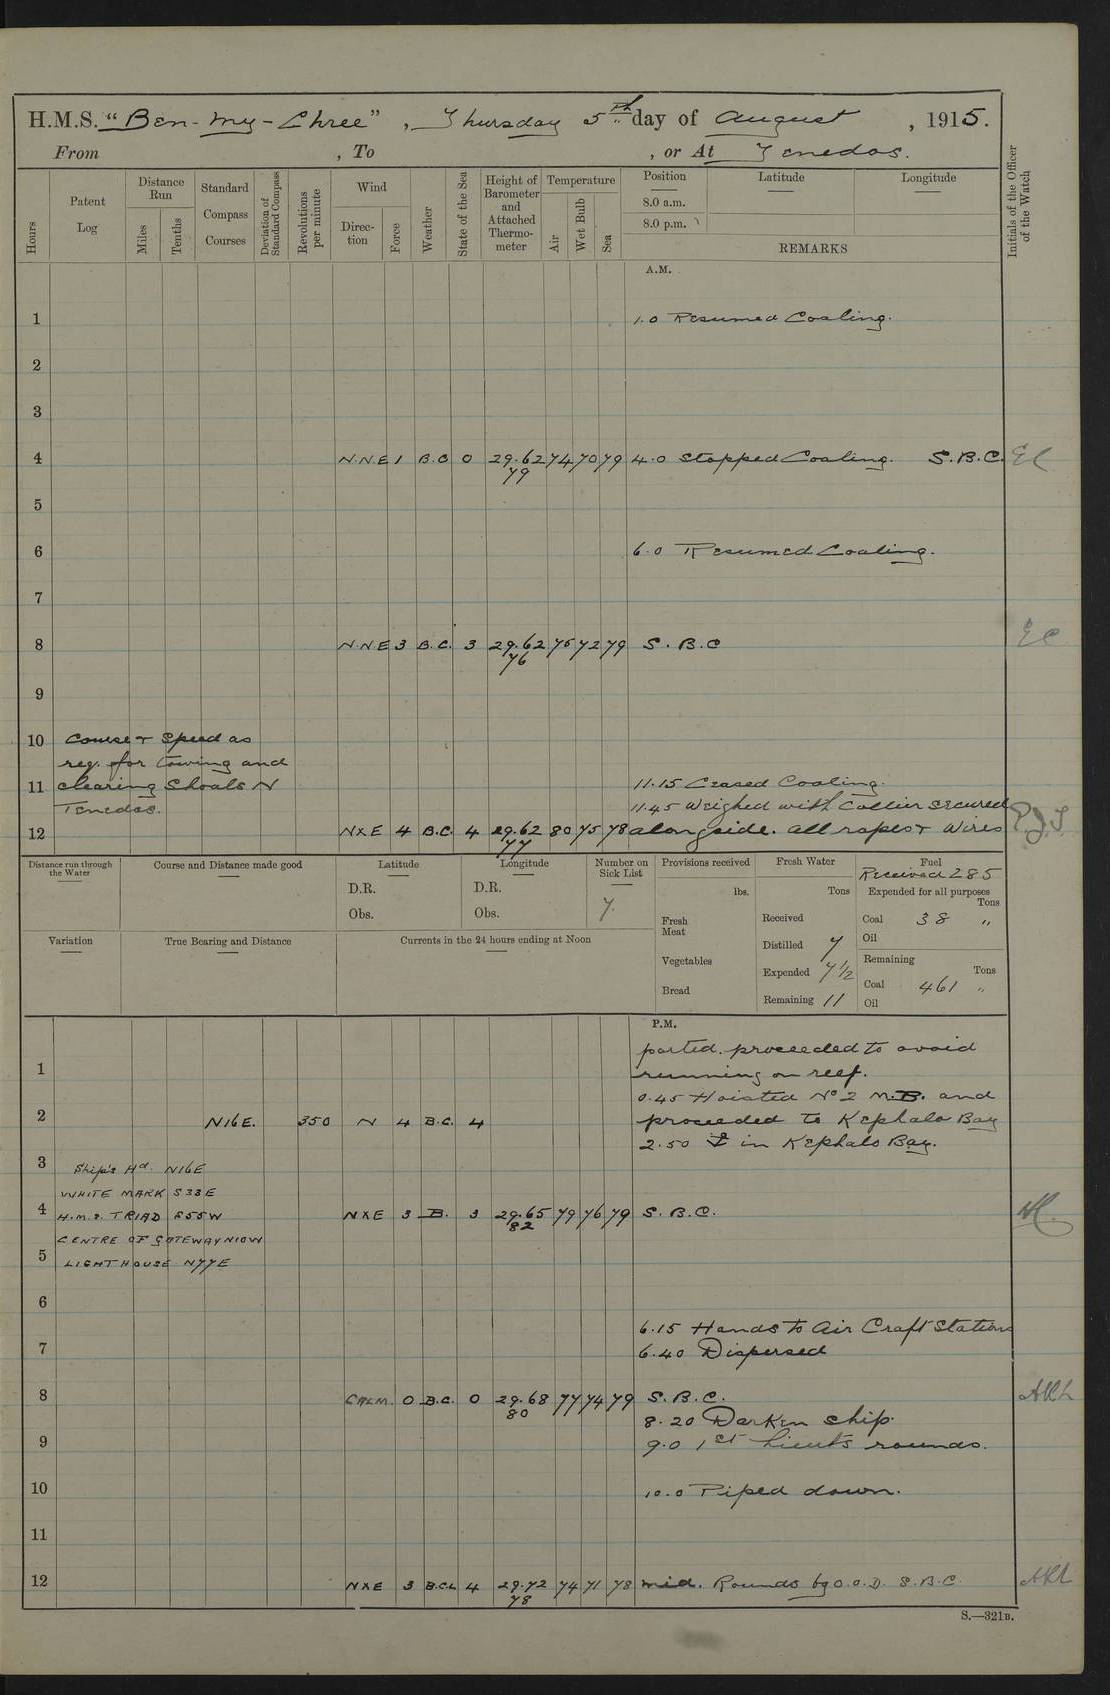 H.M.S. "Ben-my-Chree", Thursday 5th day of August, 1915.
From , To , or At Tenedos.
Hours
Patent Log
Distance Run
Miles
Tenths
Standard Compass Courses
Deviation of Standard Compass
Revolutions per minute
Wind
Direction
Force
Weather
State of the Sea
Height of Barometer and Attached Thermometer
Temperature
Air
Wet Bulb
Sea
Position
8.0 a.m.
8.0 p.m.
Latitude
Longitude
REMARKS
Initials of the Officer of the Watch
A.M.
1 1.0 Resumed Coaling.
2
3
4 N.N.E 1 B.C 0 29.62 74 70 79 4.0 Stopped Coaling. S.B.C. EC
79
5
6 6.0 Resumed Coaling.
7
8 N.N.E 3 B.C. 3 29.62 75 72 79 S.B.C EC
76
9
10 Course & Speed as
req. for towing and
11 clearing Shoals N 11.15 Ceased Coaling.
Tenedos. 11.45 Weighed with Collier secured
12 NXE 4 B.C. 4 29.62 80 75 78 alongside. All ropes & wires
77
Distance run through the Water
Course and Distance made good
Latitude
D.R.
Obs.
Longitude
D.R.
Obs.
Number on Sick List
7.
Provisions received
lbs.
Fresh Meat
Vegetables
Bread
Fresh Water
Tons
Received
Distilled 7
Expended 7½
Remaining 11
Fuel
Received 285
Expended for all purposes
Tons
Coal 38 "
Oil
Remaining
Tons
Coal 461 "
Oil
Variation
True Bearing and Distance
Currents in the 24 hours ending at Noon
P.M.
parted. proceeded to avoid
1 running on reef.
0.45 Hoisted No 2 M.B. and
2 N16E. 350 N 4 B.C. 4 proceeded to Kephalo Bay
2.50 in Kephalo Bay.
3 Ship's Hd. N16E
WHITE MARK S33E
4 H.M.S. TRIAD S55W NXE 3 B. 3 29.65 79 76 79 S.B.C.
82
CENTRE OF GATEWAY N10W
5 LIGHTHOUSE N77E
6
6.15 Hands to Air Craft Stations
7 6.40 Dispersed
8 CALM. 0 B.C. 0 29.68 77 74 79 S.B.C.
80
8.20 Darken ship.
9 9.0 1st Lieut's rounds.
10 10.0 Piped down.
11
12 NXE 3 B.C.L 4 29.72 74 71 78 mid. Rounds by O.O.D. S.B.C.
78
S.—321B.